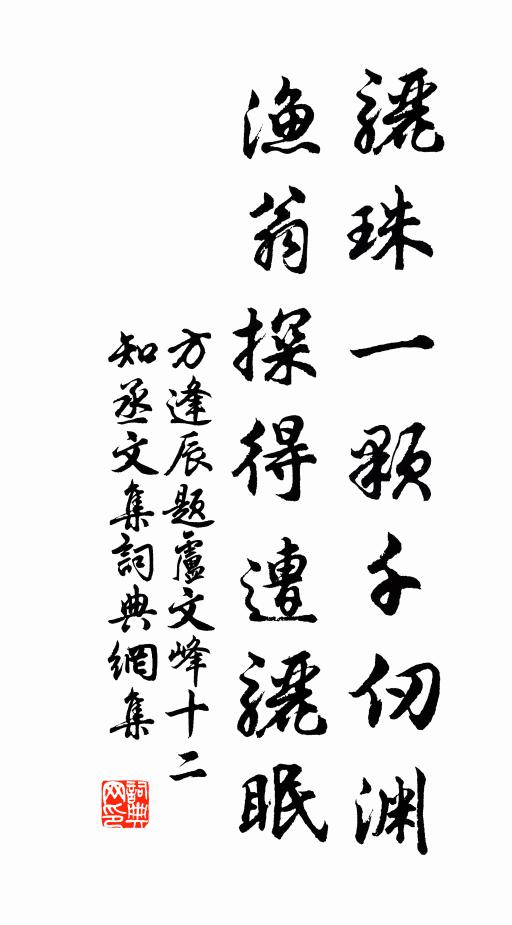 驪珠一顆千仞渊
漁翁探得遭驪眠
方逢辰题盧文峰十二
知丞文集詞典網集
詞典网印